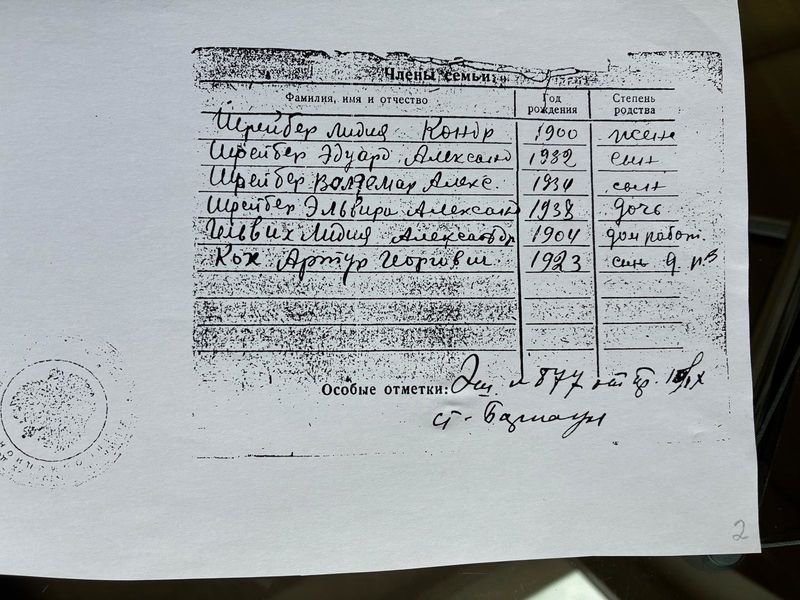 Члены семьи:
Фамилия, имя и отчество Год рождения Степень родства
Шрейбер Лидия Кондр 1900 жена
Шрейбер Эдуард Александ 1932 сын
Шрейбер Волдемар Алекс. 1934 сын
Шрейбер Эльвира Александ 1938 дочь
Лидия Александр 1904 дом работ.
Кох Артур Георгови 1923 сын
Особые отметки: Эш № 877 отпр.
ст. Барнаул
2